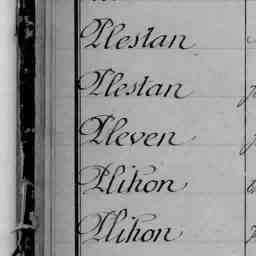 Plestan
Plestan
Pleven
Plihon
Plihon